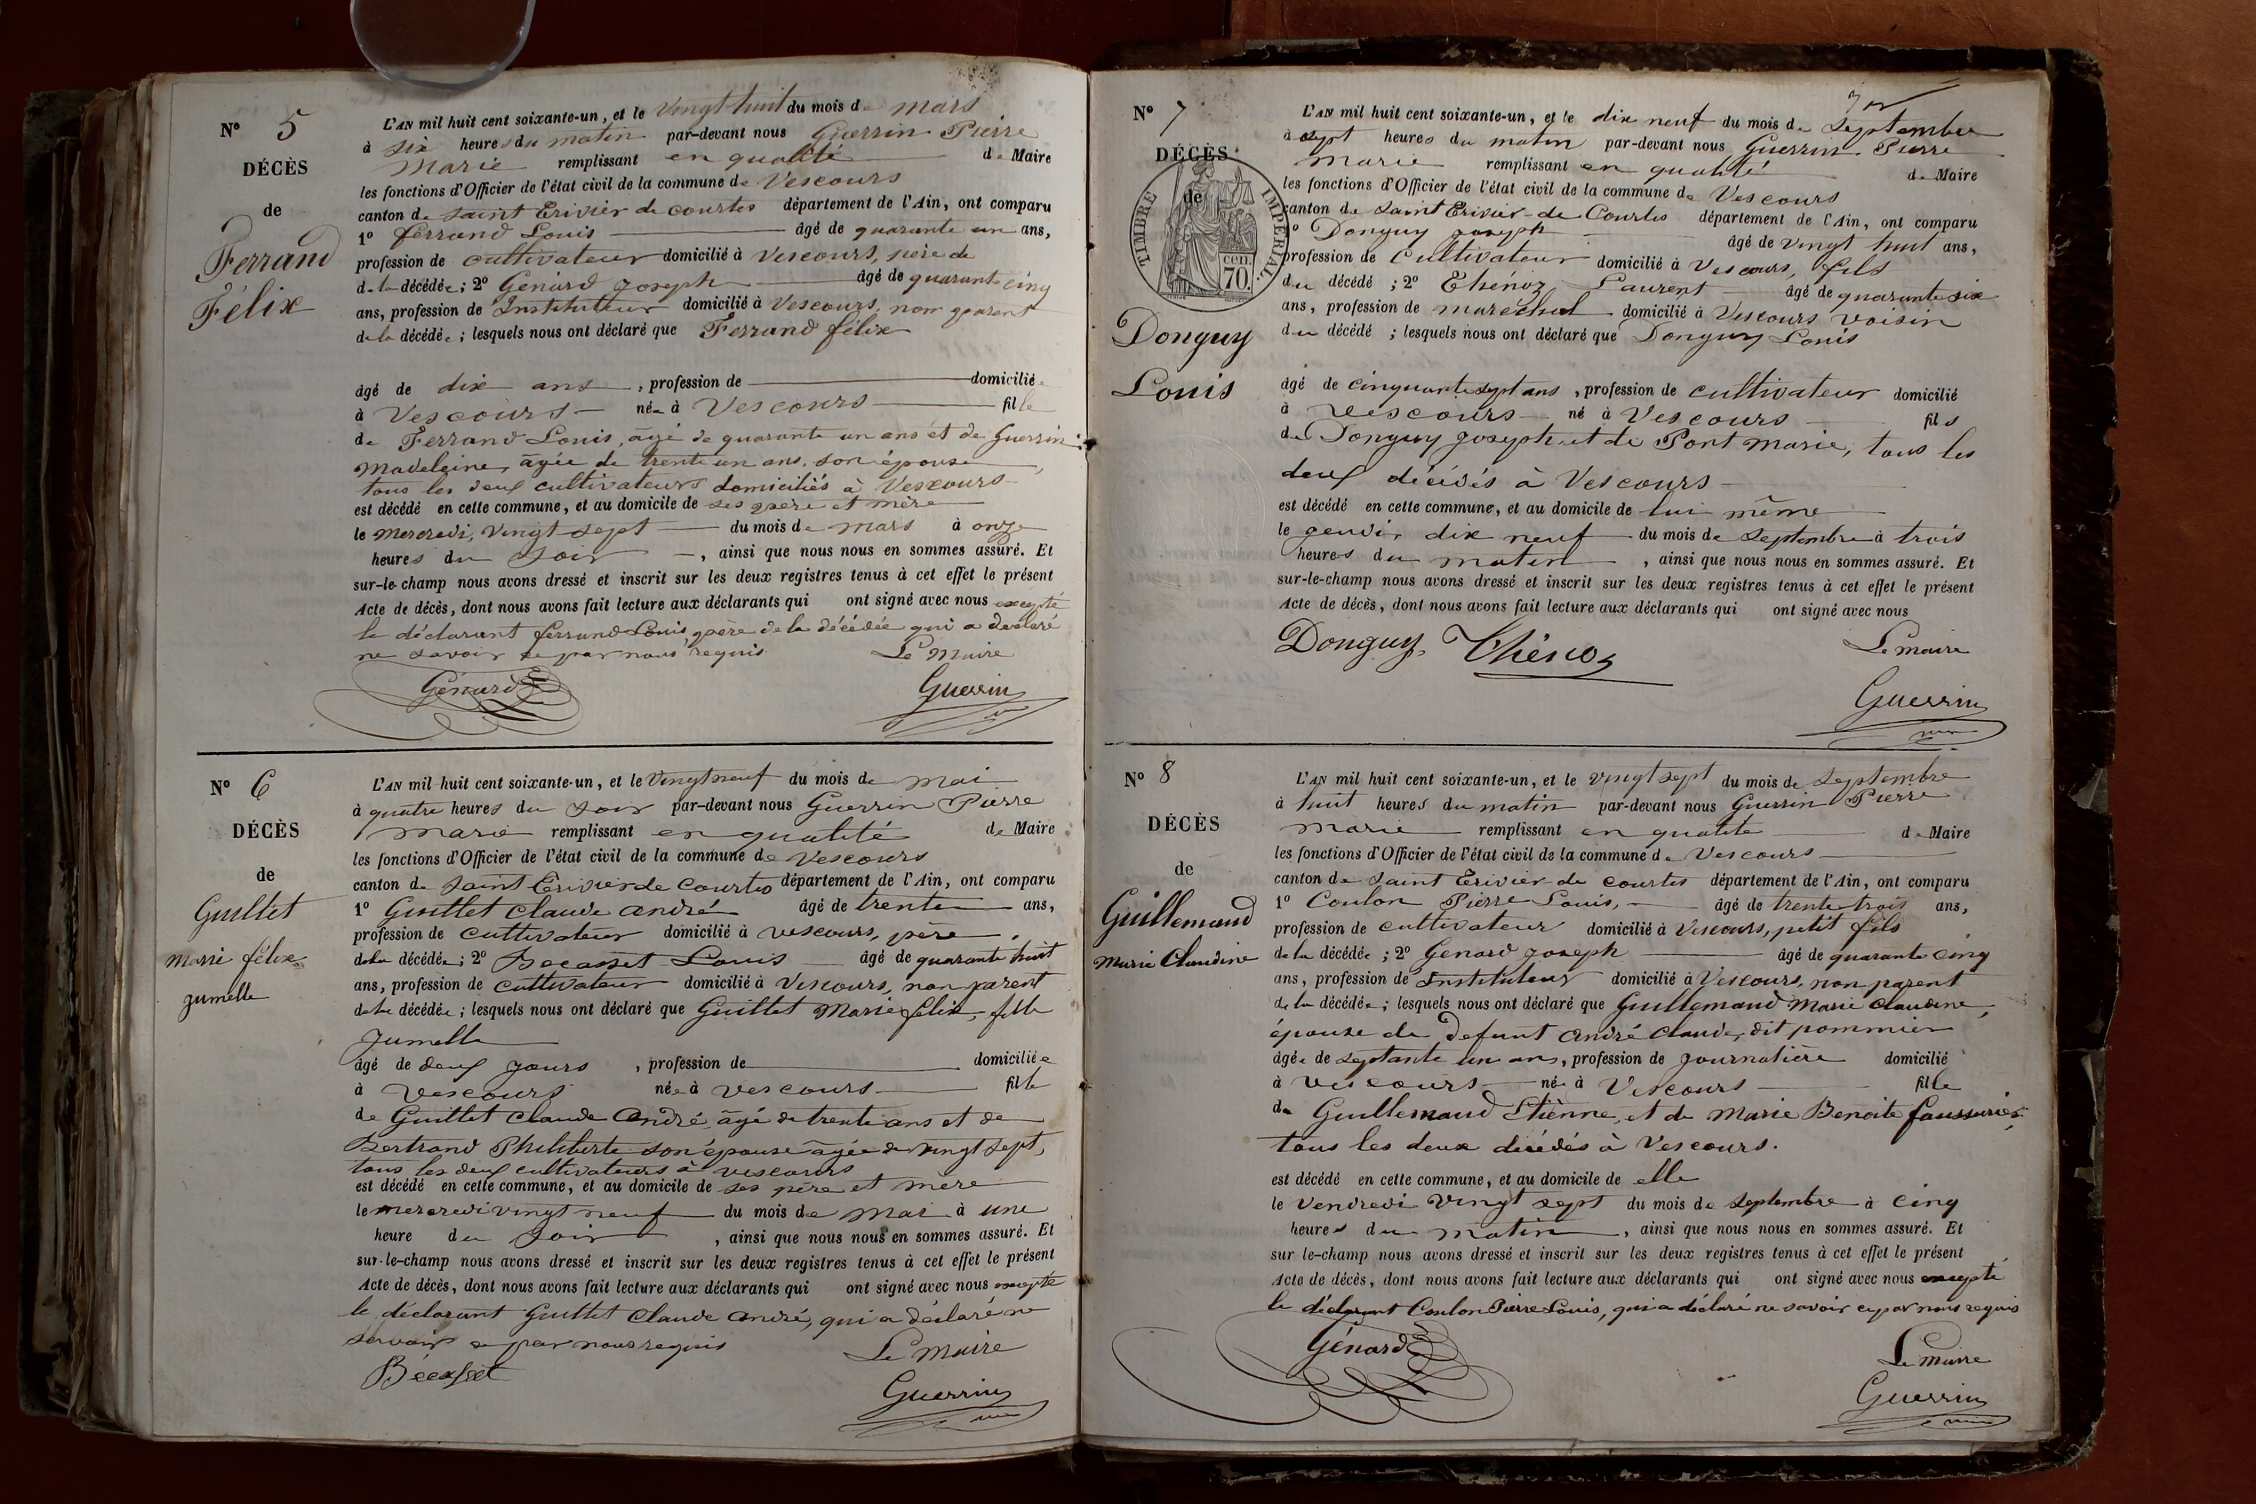 N° 5
DÉCÈS
de
Ferrand
Félix
L'AN mil huit cent soixante-un, et le vingt huit du mois de mars
à six heures du matin par-devant nous Guerrin Pierre
Marie remplissant en qualité de Maire
les fonctions d'Officier de l'état civil de la commune de Vescours
canton de Saint Trivier de Courtes département de l'Ain, ont comparu
1° Ferrand Louis âgé de quarante un ans,
profession de cultivateur domicilié à Vescours, père de
de la décédée ; 2° Génard Joseph âgé de quarante cinq
ans, profession de Instituteur domicilié à Vescours, non parent
de la décédée ; lesquels nous ont déclaré que Ferrand félix
âgé de dix ans , profession de domiciliée
à Vescours née à Vescours fille
de Ferrand Louis, âgé de quarante un ans et de Guerrin
Madeleine, âgée de trente un ans, son épouse,
tous les deux cultivateurs domiciliés à Vescours
est décédé en cette commune, et au domicile de ses père et mère
le mercredi, vingt sept du mois de mars à onze
heures du soir , ainsi que nous nous en sommes assuré. Et
sur-le-champ nous avons dressé et inscrit sur les deux registres tenus à cet effet le présent
Acte de décès, dont nous avons fait lecture aux déclarants qui ont signé avec nous excepté
le déclarant ferrand Louis, père de la décédée qui a déclaré
ne savoir de par nous requis Le Maire
Génard Guerrin
N° 6
DÉCÈS
de
Guillet
Marie félix
jumelle
L'AN mil huit cent soixante-un, et le vingt neuf du mois de mai
à quatre heures du soir par-devant nous Guerrin Pierre
Marie remplissant en qualité de Maire
les fonctions d'Officier de l'état civil de la commune de Vescours
canton de Saint Trivier de Courtes département de l'Ain, ont comparu
1° Guillet Claude André âgé de trente ans,
profession de cultivateur domicilié à Vescours, père
de la décédée ; 2° Becasset Louis âgé de quarante huit
ans, profession de cultivateur domicilié à Vescours, non parent
de la décédée ; lesquels nous ont déclaré que Guillet Marie félix, fille
jumelle
âgé de deux jours , profession de domiciliée
à Vescours née à Vescours fille
de Guillet Claude André, âgé de trente ans et de
Bertrand Philiberte son épouse âgée de vingt sept,
tous les deux cultivateurs à Vescours
est décédé en cette commune, et au domicile de ses père et mère
le mercredi vingt neuf du mois de mai à une
heure du soir , ainsi que nous nous en sommes assuré. Et
sur-le-champ nous avons dressé et inscrit sur les deux registres tenus à cet effet le présent
Acte de décès, dont nous avons fait lecture aux déclarants qui ont signé avec nous excepté
le déclarant Guillet Claude André, qui a déclaré ne
savoir de par nous requis Le Maire
Bécasset Guerrin
N° 7
DÉCÈS
de
TIMBRE IMPÉRIAL
CEN. 70.
Donguy
Louis
L'AN mil huit cent soixante-un, et le dix neuf du mois de Septembre
à sept heures du matin par-devant nous Guerrin Pierre
Marie remplissant en qualité de Maire
les fonctions d'Officier de l'état civil de la commune de Vescours
canton de Saint Trivier de Courtes département de l'Ain, ont comparu
Donguy Joseph âgé de vingt huit ans,
profession de Cultivateur domicilié à Vescours, fils
du décédé ; 2° Thénoz Laurent âgé de quarante six
ans, profession de maréchal domicilié à Vescours voisin
du décédé ; lesquels nous ont déclaré que Donguy Louis
âgé de cinquante sept ans , profession de cultivateur domicilié
à Vescours né à Vescours fils
de Donguy Joseph et de Pont Marie, tous les
deux décédés à Vescours
est décédé en cette commune, et au domicile de lui même
le jeudi, dix neuf du mois de Septembre à trois
heures du matin , ainsi que nous nous en sommes assuré. Et
sur-le-champ nous avons dressé et inscrit sur les deux registres tenus à cet effet le présent
Acte de décès, dont nous avons fait lecture aux déclarants qui ont signé avec nous
Donguy Thénoz Le maire
Guerrin
N° 8
DÉCÈS
de
Guillemaud
Marie Claudine
L'AN mil huit cent soixante-un, et le vingt sept du mois de Septembre
à huit heures du matin par-devant nous Guerrin Pierre
Marie remplissant en qualité de Maire
les fonctions d'Officier de l'état civil de la commune de Vescours
canton de Saint Trivier de Courtes département de l'Ain, ont comparu
1° Coulon Pierre Louis, âgé de trente trois ans,
profession de cultivateur domicilié à Vescours, petit fils
de la décédée ; 2° Génard Joseph âgé de quarante cinq
ans, profession de Instituteur domicilié à Vescours, non parent
de la décédée ; lesquels nous ont déclaré que Guillemaud Marie Claudine,
épouse de défunt André Claude, dit pommier
âgée de septante un ans, profession de journalière domicilié
à Vescours née à Vescours fille
de Guillemaud Etienne, et de Marie Benoite faussurier,
tous les deux décédés à Vescours.
est décédé en cette commune, et au domicile de elle
le vendredi vingt sept du mois de septembre à cinq
heures du matin , ainsi que nous nous en sommes assuré. Et
sur le-champ nous avons dressé et inscrit sur les deux registres tenus à cet effet le présent
Acte de décès, dont nous avons fait lecture aux déclarants qui ont signé avec nous excepté
le déclarant Coulon Pierre Louis, qui a déclaré ne savoir de par nous requis
Génard Le maire
Guerrin